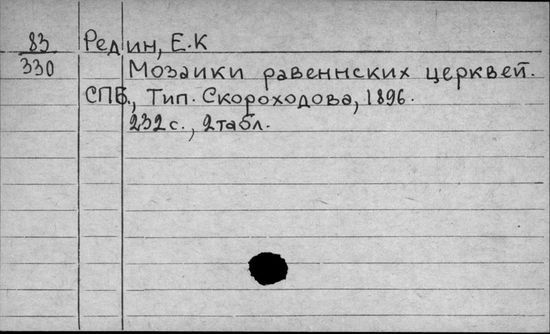 83 Редин, Е.К
330 Мозаики равеннских церквей.
СПБ., Тип. Скороходова, 1896.
232 с., 2 табл.